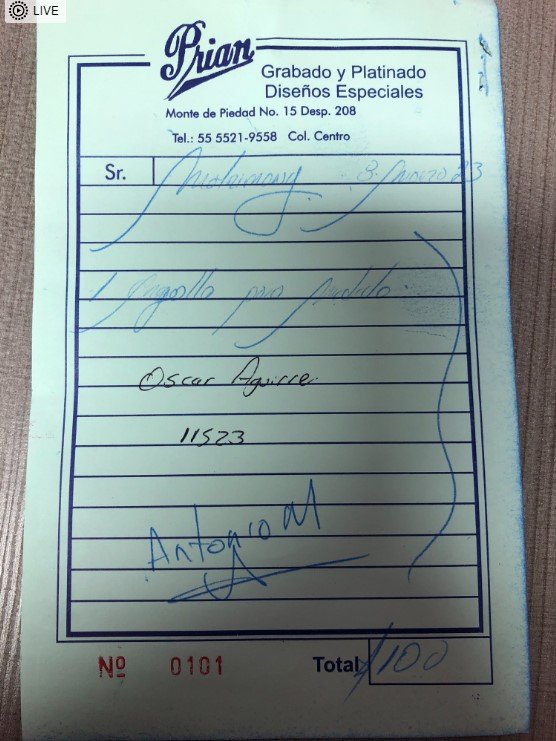 LIVE
Prian
Grabado y Platinado
Diseños Especiales
Monte de Piedad No. 15 Desp. 208
Tel.: 55 5521-9558 Col. Centro
Sr. 23
1
Oscar Aguirre
11523
Antonio M
Nº 0101 Total $100